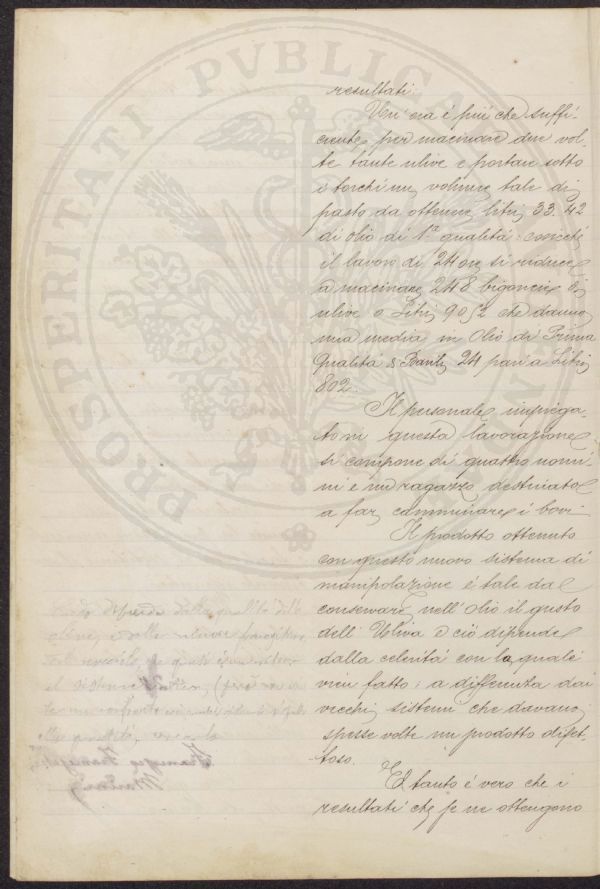 resultati.
Un' ora è piú che suffi-
ciente per macinare due vol-
te tante ulive e portare sotto
i torchi un volume tale di
pasto da ottenere litri 33.42
di olio di 1ª qualitá: cosicché
il lavoro di 24 ore si riduce
a macinare 248 bigoncie di
ulive o Litri 9052 che danno
una media in Olio di Prima
Qualitá di Barili 24 pari a Litri
802.
Il personale impiega-
to in questa lavorazione
si compone di quattro uomi-
ni e un ragazzo destinato
a far camminare i bovi.
Il prodotto ottenuto
con questo nuovo sistema di
manipolazione é tale da
conservare nell' olio il gusto
dell' Uliva e ció dipende
dalla celeritá con la quale
vien fatto; a differenza dai
vecchi sistemi che davano
spesse volte un prodotto difet-
toso.
E tanto é vero che i
resultati che se ne ottengono
PROSPERITATI PVBLICAE
dipende dalla qualità delle
olive, e dalle